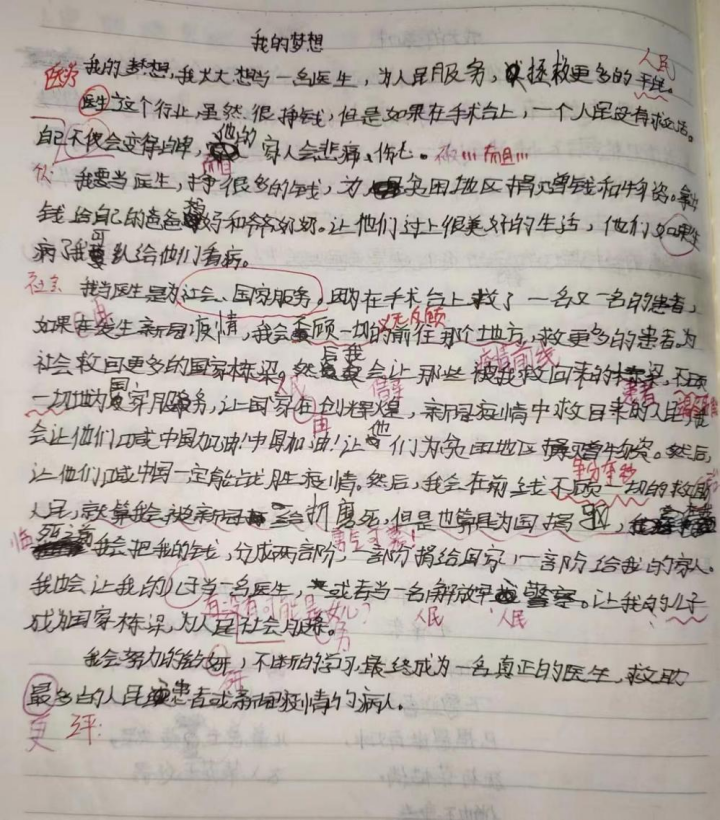 我的梦想
我的梦想,我长大想当一名医生,为人民服务,拯救更多的
人民
医生这个行业,虽然很挣钱,但是如果在手术台上,一个人民没有救活。
自己不仅会变得自卑,他的家人会悲痛、伤心。
而且
我要当医生,挣很多的钱,为贫困地区捐赠钱和物资。
钱给自己的爸爸妈妈和爷爷奶奶。让他们过上很美好的生活,他们如果生
病了我可以给他们看病。
我当医生是为社会、国家服务。因为在手术台上救了一名又一名的患者,
义无反顾
如果在发生新冠疫情,我会不顾一切的前往那个地方,救更多的患者。为
疫情前线
社会救回更多的国家栋梁。然后我会让那些被我救回来的患者,不顾
一切地为国家服务,让国家在创辉煌,新冠疫情中救回来的人民
再
会让他们喊中国加油!中国加油!让他们为贫困地区捐赠物资。然后,
让他们喊中国一定能战胜疫情。然后,我会在前线不顾一切的救助
人民,就算我会被新冠给折磨死,但是也算是为国捐躯,
临死之前我会把我的钱,分成两部分,一部分捐给国家,一部分给我的家人。
我也会让我的儿子当一名医生,或者当一名解放军警察。让我的儿子
人民 人民
成为国家栋梁,为人民社会服务。
我会努力的钻研,不断的学习,最终成为一名真正的医生,救助
最多的人民患者或新冠疫情的病人。
更 评: